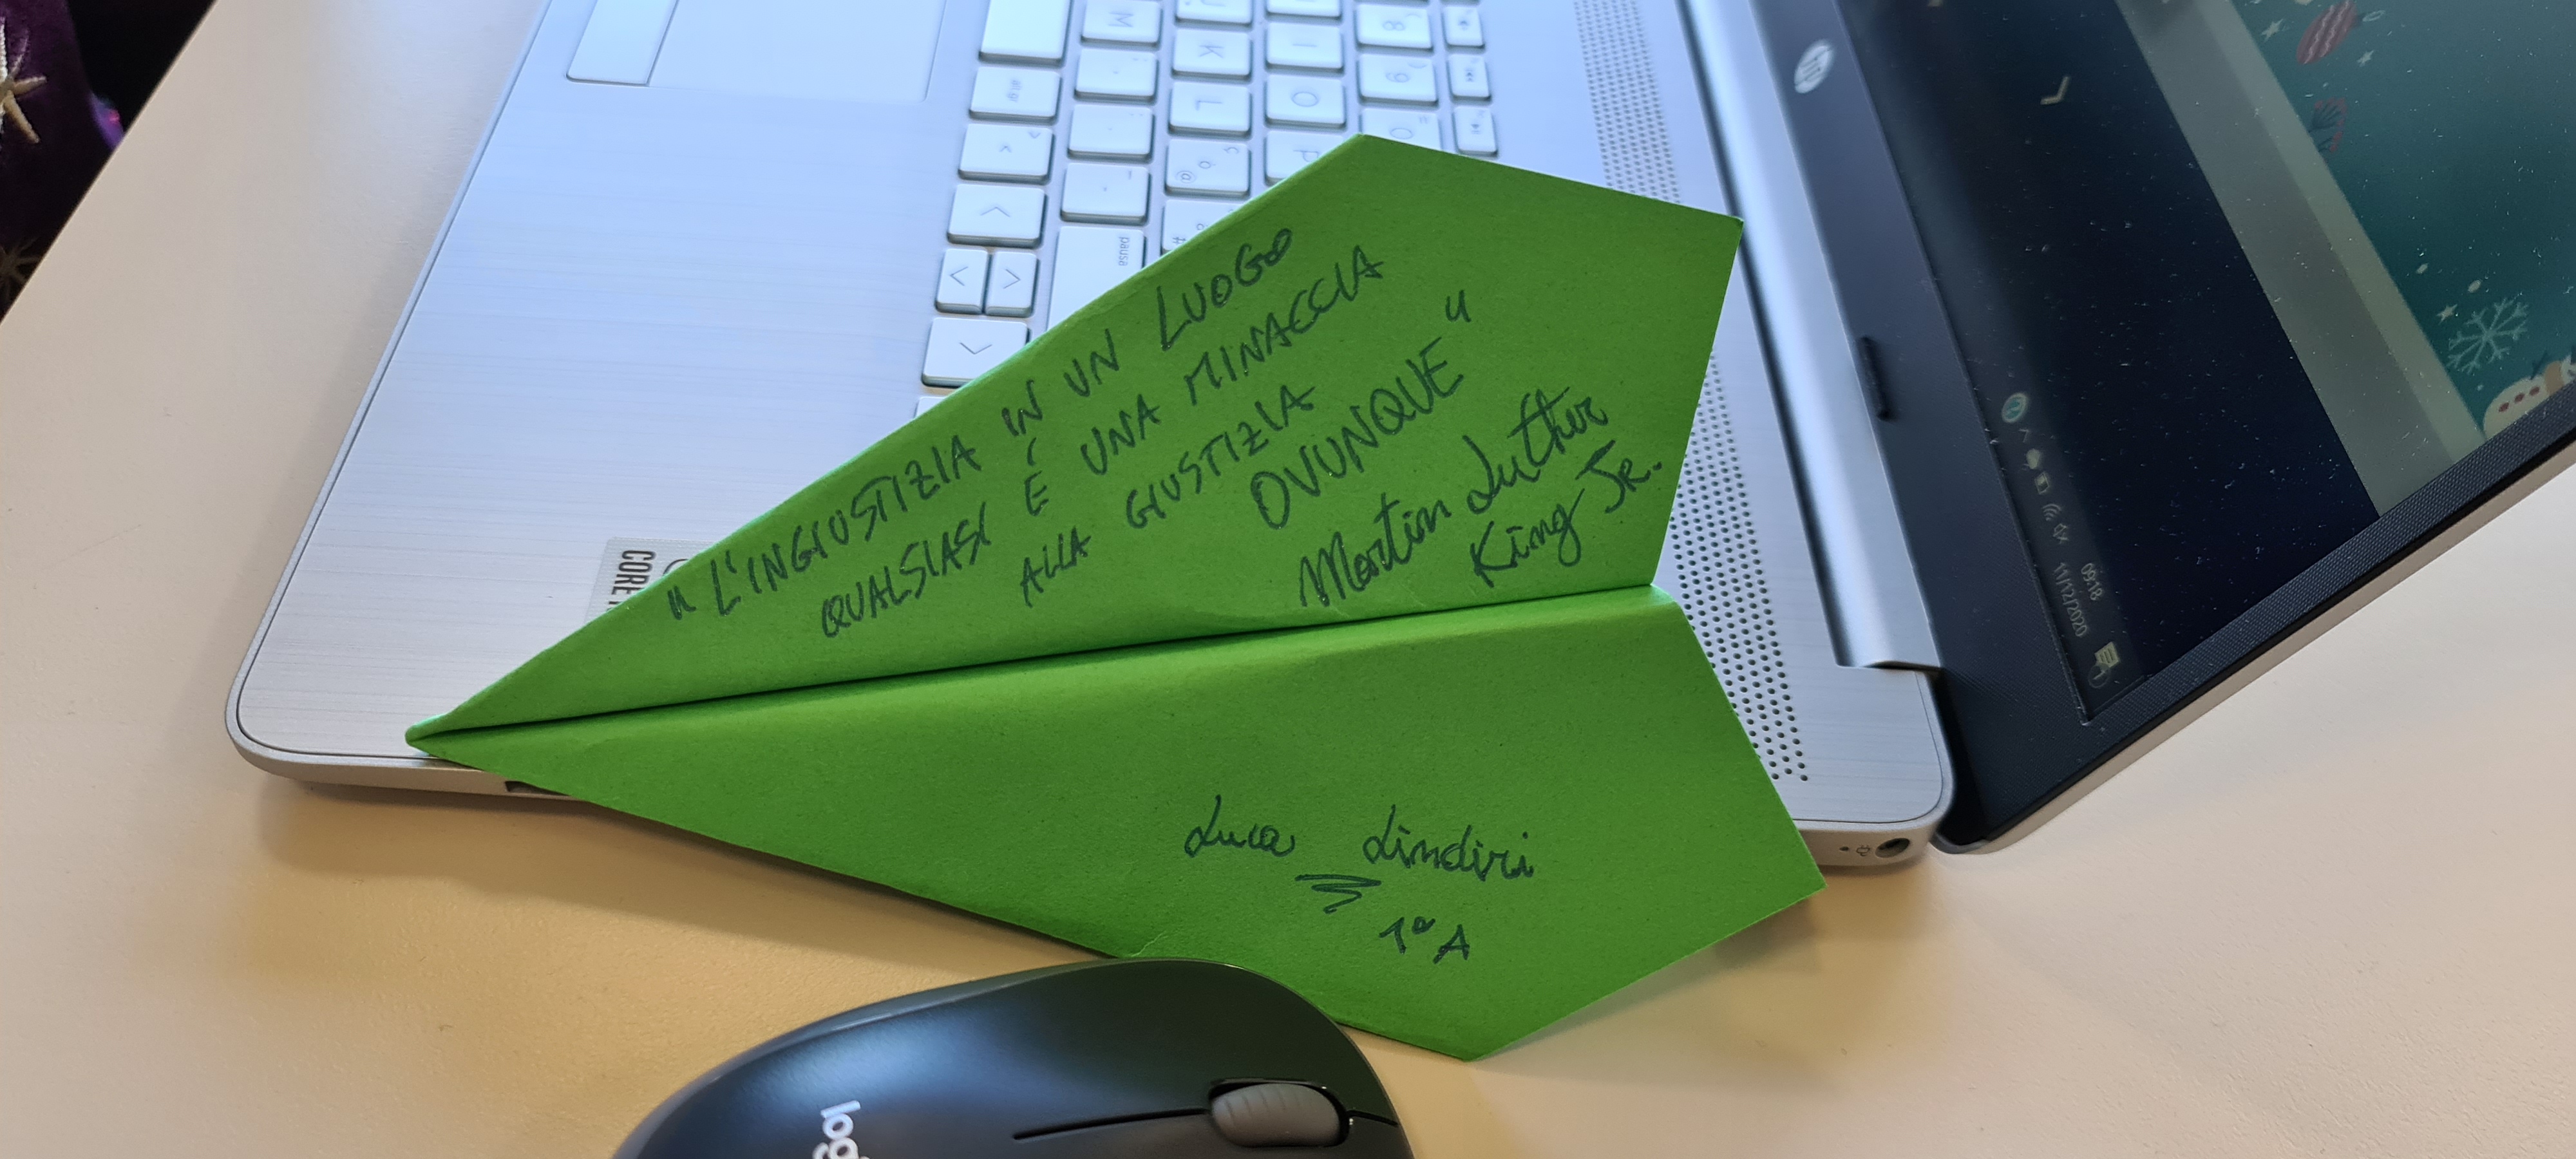 " L'INGIUSTIZIA IN UN LUOGO
QUALSIASI É UNA MINACCIA
ALLA GIUSTIZIA
OVUNQUE "
Martin Luther
King Jr.
Luca Lindiri
1ª A
CORE
pausa
alt gr
M
K
L
I
O
P
8
9
hp
09:18
11/12/2020
logi